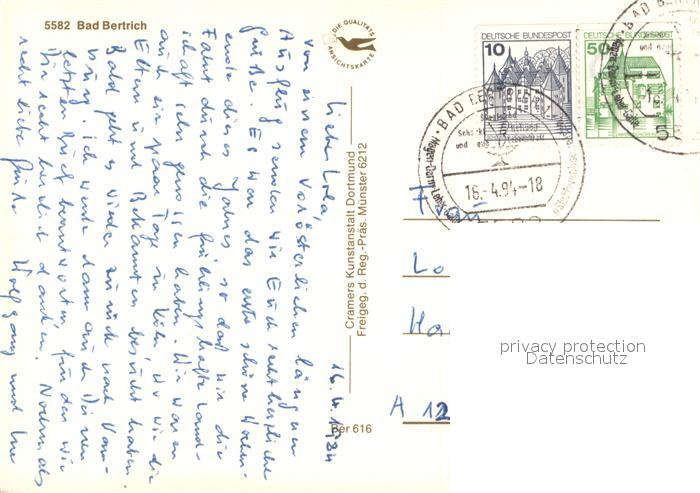 5582 Bad Bertrich
DIE QUALITÄTS
ANSICHTSKARTE
DEUTSCHE BUNDESPOST
10
DEUTSCHE BUNDESPOST
50
BAD BERTRICH
16.-4.84-18
BAD BERTRICH
16.
5
Cramers Kunstanstalt Dortmund
Freigeg. d. Reg.-Präs. Münster 6212
Ber 616
16.4.1984
Liebe Lola,
von einem vorösterlichen längeren
Ausflug senden wir Euch recht herzliche
Grüße. Es war das erste schöne Wochen-
ende dieses Jahres, so daß wir die
Fahrt durch die frühlingshafte Land-
schaft sehr genossen haben. Wir waren
auch ein paar Tage in Köln, wo wir die
Eltern und Bekannten besucht haben.
Bald geht es wieder zurück nach Ham-
burg. Ich werde dann auch Deinen
letzten Brief beantworten, für den wir
Dir recht herzlich danken. Nochmals
recht liebe Grüße Wolfgang und
Lo
Ha
A 12
privacy protection
Datenschutz